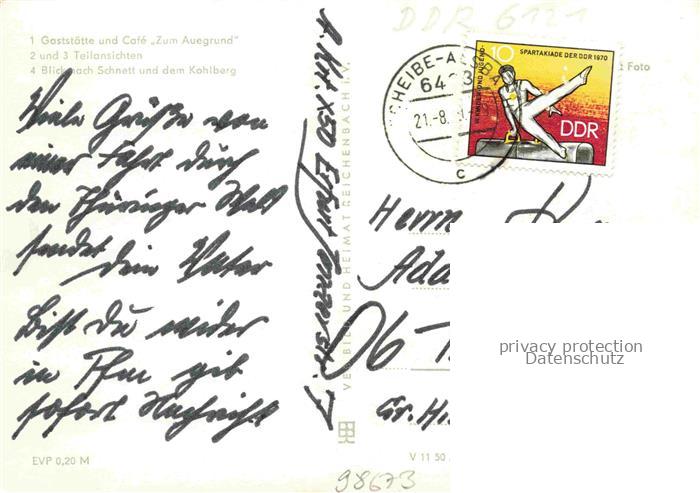 DDR 6121
1 Gaststätte und Café „Zum Auegrund"
2 und 3 Teilansichten
4 Blick nach Schnett und dem Kohlberg
Viele Grüße von
einer Fahrt durch
den Thüringer Wald
sendet dein Vater
Bist du wieder
in Ffm gib
sofort Nachricht
EVP 0,20 M
VERL. BILD UND HEIMAT REICHENBACH I. V.
SCHEIBE-ALSBACH
21.-8.
c
10
SPARTAKIADE DER DDR 1970
KINDER- UND JUGEND-
DDR
Foto
Herrn
Ada
06
Gr.
V 11 50
98673
privacy protection
Datenschutz